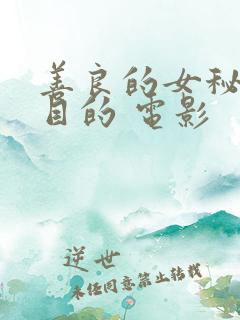 善良的女秘
目的 電影
逆世
未经同意禁止转载